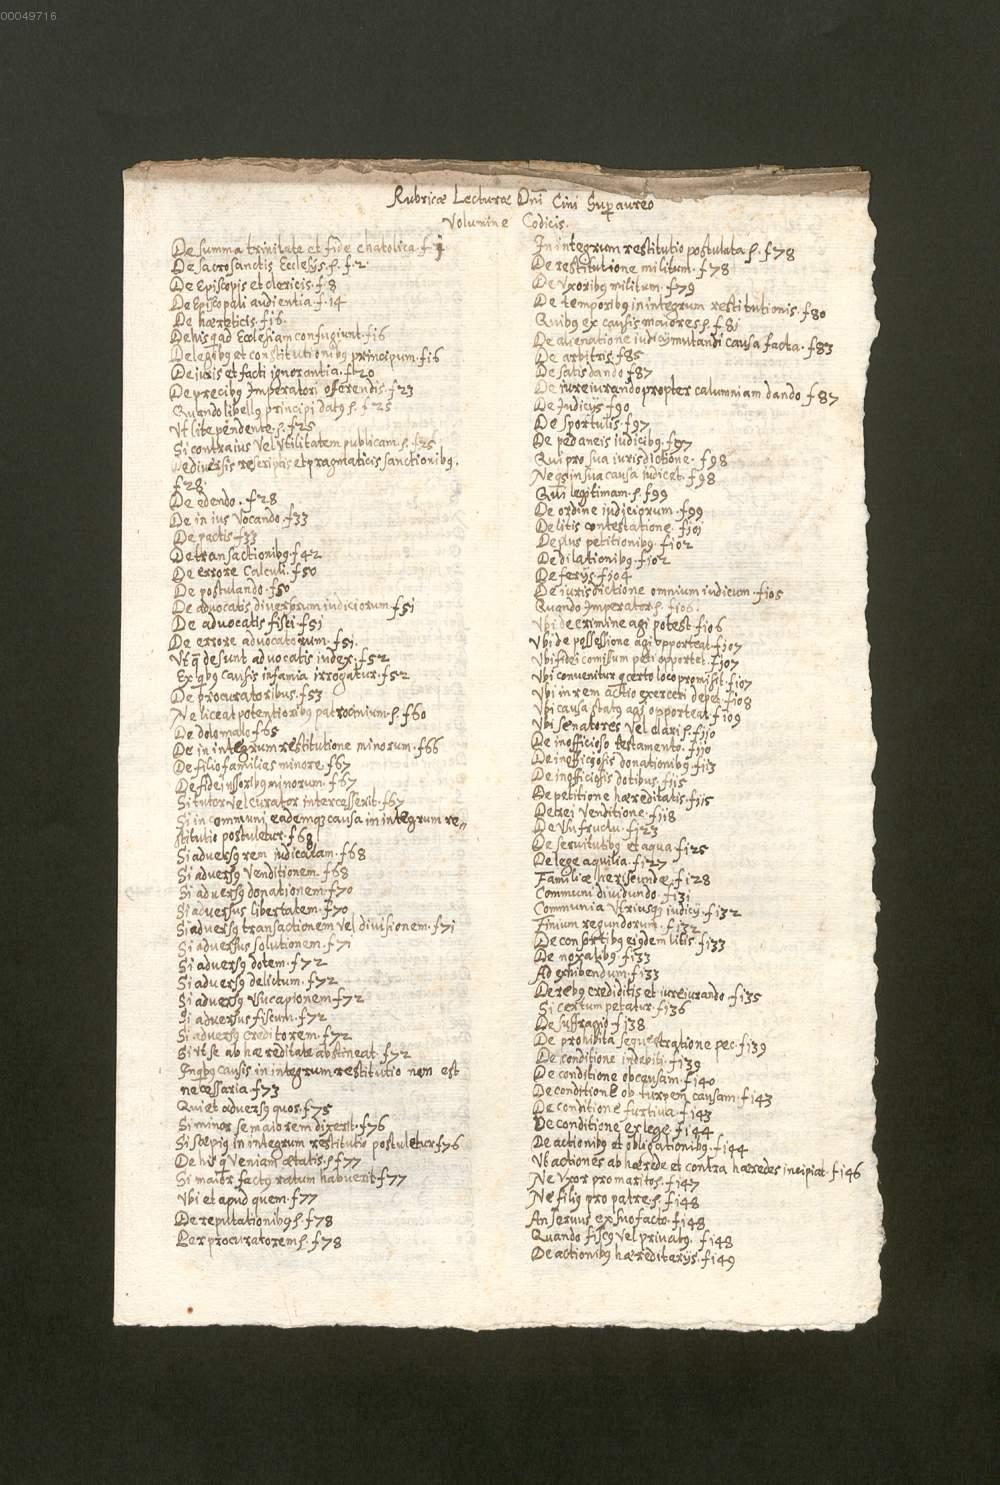 00049716
Rubricæ Lecturæ Dnī Cini Suꝑ aureo
Volumine Codicis.
De summa trinitate et fide chatolica. f. 1
De sacrosanctis Ecclesijs. ſ. f. 2
De Episcopis et clericis. f. 8
De Episcopali audientia. f. 14
De hæreticis. f 16
De his q ad Ecclesiam confugiunt. f 16
De legibꝰ et constitutionibꝰ principum. f 16
De iuris et facti ignorantia. f 20
De precibꝰ Imperatori offerendis. f 23
Quando libellꝰ principi datꝰ ſ. f 25
Vt lite pendente. ſ. f 25
Si contra ius Vel Vtilitatem publicam. ſ. f 25
De diversis rescriptis et pragmaticis sanctionibꝰ.
f 28.
De edendo. f 28
De in ius Vocando. f 33
De pactis f 33
De transactionibꝰ. f 42
De errore Calculi. f 50
De postulando. f 50
De advocatis diversorum iudiciorum. f 51
De advocatis fisci. f 51
De errore advocatorum. f 51.
Vt q̄ desunt advocatis iudex. f 52
Ex qbꝰ causis infamia irrogatur. f 52
De procuratoribus. f 53
Ne liceat potentioribꝰ patrocinium. ſ. f 60
De dolo malo f 65
De in integrum restitutione minorum. f 66
De filio familias minore. f 67
De fideiussoribꝰ minorum. f 67
Si tutor vel curator intercesserit. f 67
Si in communi eademqꝫ causa in integrum re〃
stitutio postuletur. f 68
Si adversꝰ rem judicatam. f 68
Si adversꝰ Venditionem. f 68
Si adversꝰ donationem. f 70
Si adversus libertatem. f 70
Si adversꝰ transactionem Vel divisionem. f 71
Si adversus solutionem. f 71
Si adversꝰ dotem. f 72
Si adversꝰ delictum. f 72
Si adversꝰ Vsucapionem f 72
Si adversus fiscum. f 72
Si adversꝰ creditorem. f 72
Si Vt se ab hæreditate abstineat. f 72
In qbꝰ causis in integrum restitutio non est
necessaria. f 73
Qui et adversꝰ quos. f 75
Si minor se maiorem dixerit. f 76
Si sæpius in integrum restitutio postuletur. f 76
De his q̄ Veniam ætatis. ſ. f 77
Si maior factꝰ ratum habuerit f 77
Vbi et apud quem. f 77
De reputationibꝰ ſ. f 78
Per procuratorem ſ. f 78
In integrum restitutio postulata ſ. f 78
De restitutione militum. f 78
De Vxoribꝰ militum. f 79
De temporibꝰ in integrum restitutionis. f 80
Quibꝰ ex causis maiores ſ. f 81
De alienatione iudicij mutandi causa facta. f 83
De arbitris. f 85
De satis dando f 87
De iureiurando propter calumniam dando. f 87
De Judicijs f 90
De Sportulis. f 97
De pedaneis iudicibꝰ. f 97
Qui pro sua iurisdictione. f 98
Ne qs in sua causa iudicet. f 98
Qui legitimam. ſ. f 99
De ordine iudiciorum. f 99
De litis contestatione. f 101
De plus petitionibꝰ. f 102
De dilationibꝰ. f 102
De ferijs. f 104
De iurisdictione omnium iudicum. f 105
Quando Imperator ſ. f 106.
Vbi de crimine agi potest. f 106
Vbi de possessione agi opporteat. f 107
Vbi fidei comissum peti opportet. f 107
Vbi convenitur q certo loco promisit. f 107
Vbi in rem actio exerceri debet. f 108
Vbi causa statꝰ agi opporteat. f 109
Vbi senatores Vel clari ſ. f 110
De inofficioso testamento. f 110
De inofficiosis donationibꝰ. f 113
De inofficiosis dotibus. f 115
De petitione hæreditatis. f 115
De rei Venditione. f 118
De Vsufructu. f 123
De servitutibꝰ et aqua f 125
De lege aquilia. f 127
Familiæ heriscundæ. f 128
Communi dividundo. f 131
Communia Vtriusqꝫ iudicij. f 132
Finium regundorum. f 132
De consortibꝰ eiꝰdem litis. f 133
De noxalibꝰ. f 133
Ad exhibendum. f 133
De rebꝰ creditis et iureiurando. f 135
Si certum petatur. f 136
De suffragio. f 138
De prohibita sequestratione pec. f 139
De conditione indebiti. f 139
De conditione ob causam. f 140
De conditione ob turpem causam. f 143
De conditione furtiva. f 143
De conditione ex lege. f 144
De actionibꝰ et obligationibꝰ. f 144
Vt actiones ab hærede et contra hæredes incipiat. f 146
Ne Vxor pro marito ſ. f 147
Ne filiꝰ pro patre. ſ. f 148
An servus ex suo facto. f 148
Quando fiscꝰ Vel privatꝰ. f 148
De actionibꝰ hæreditarijs. f 149